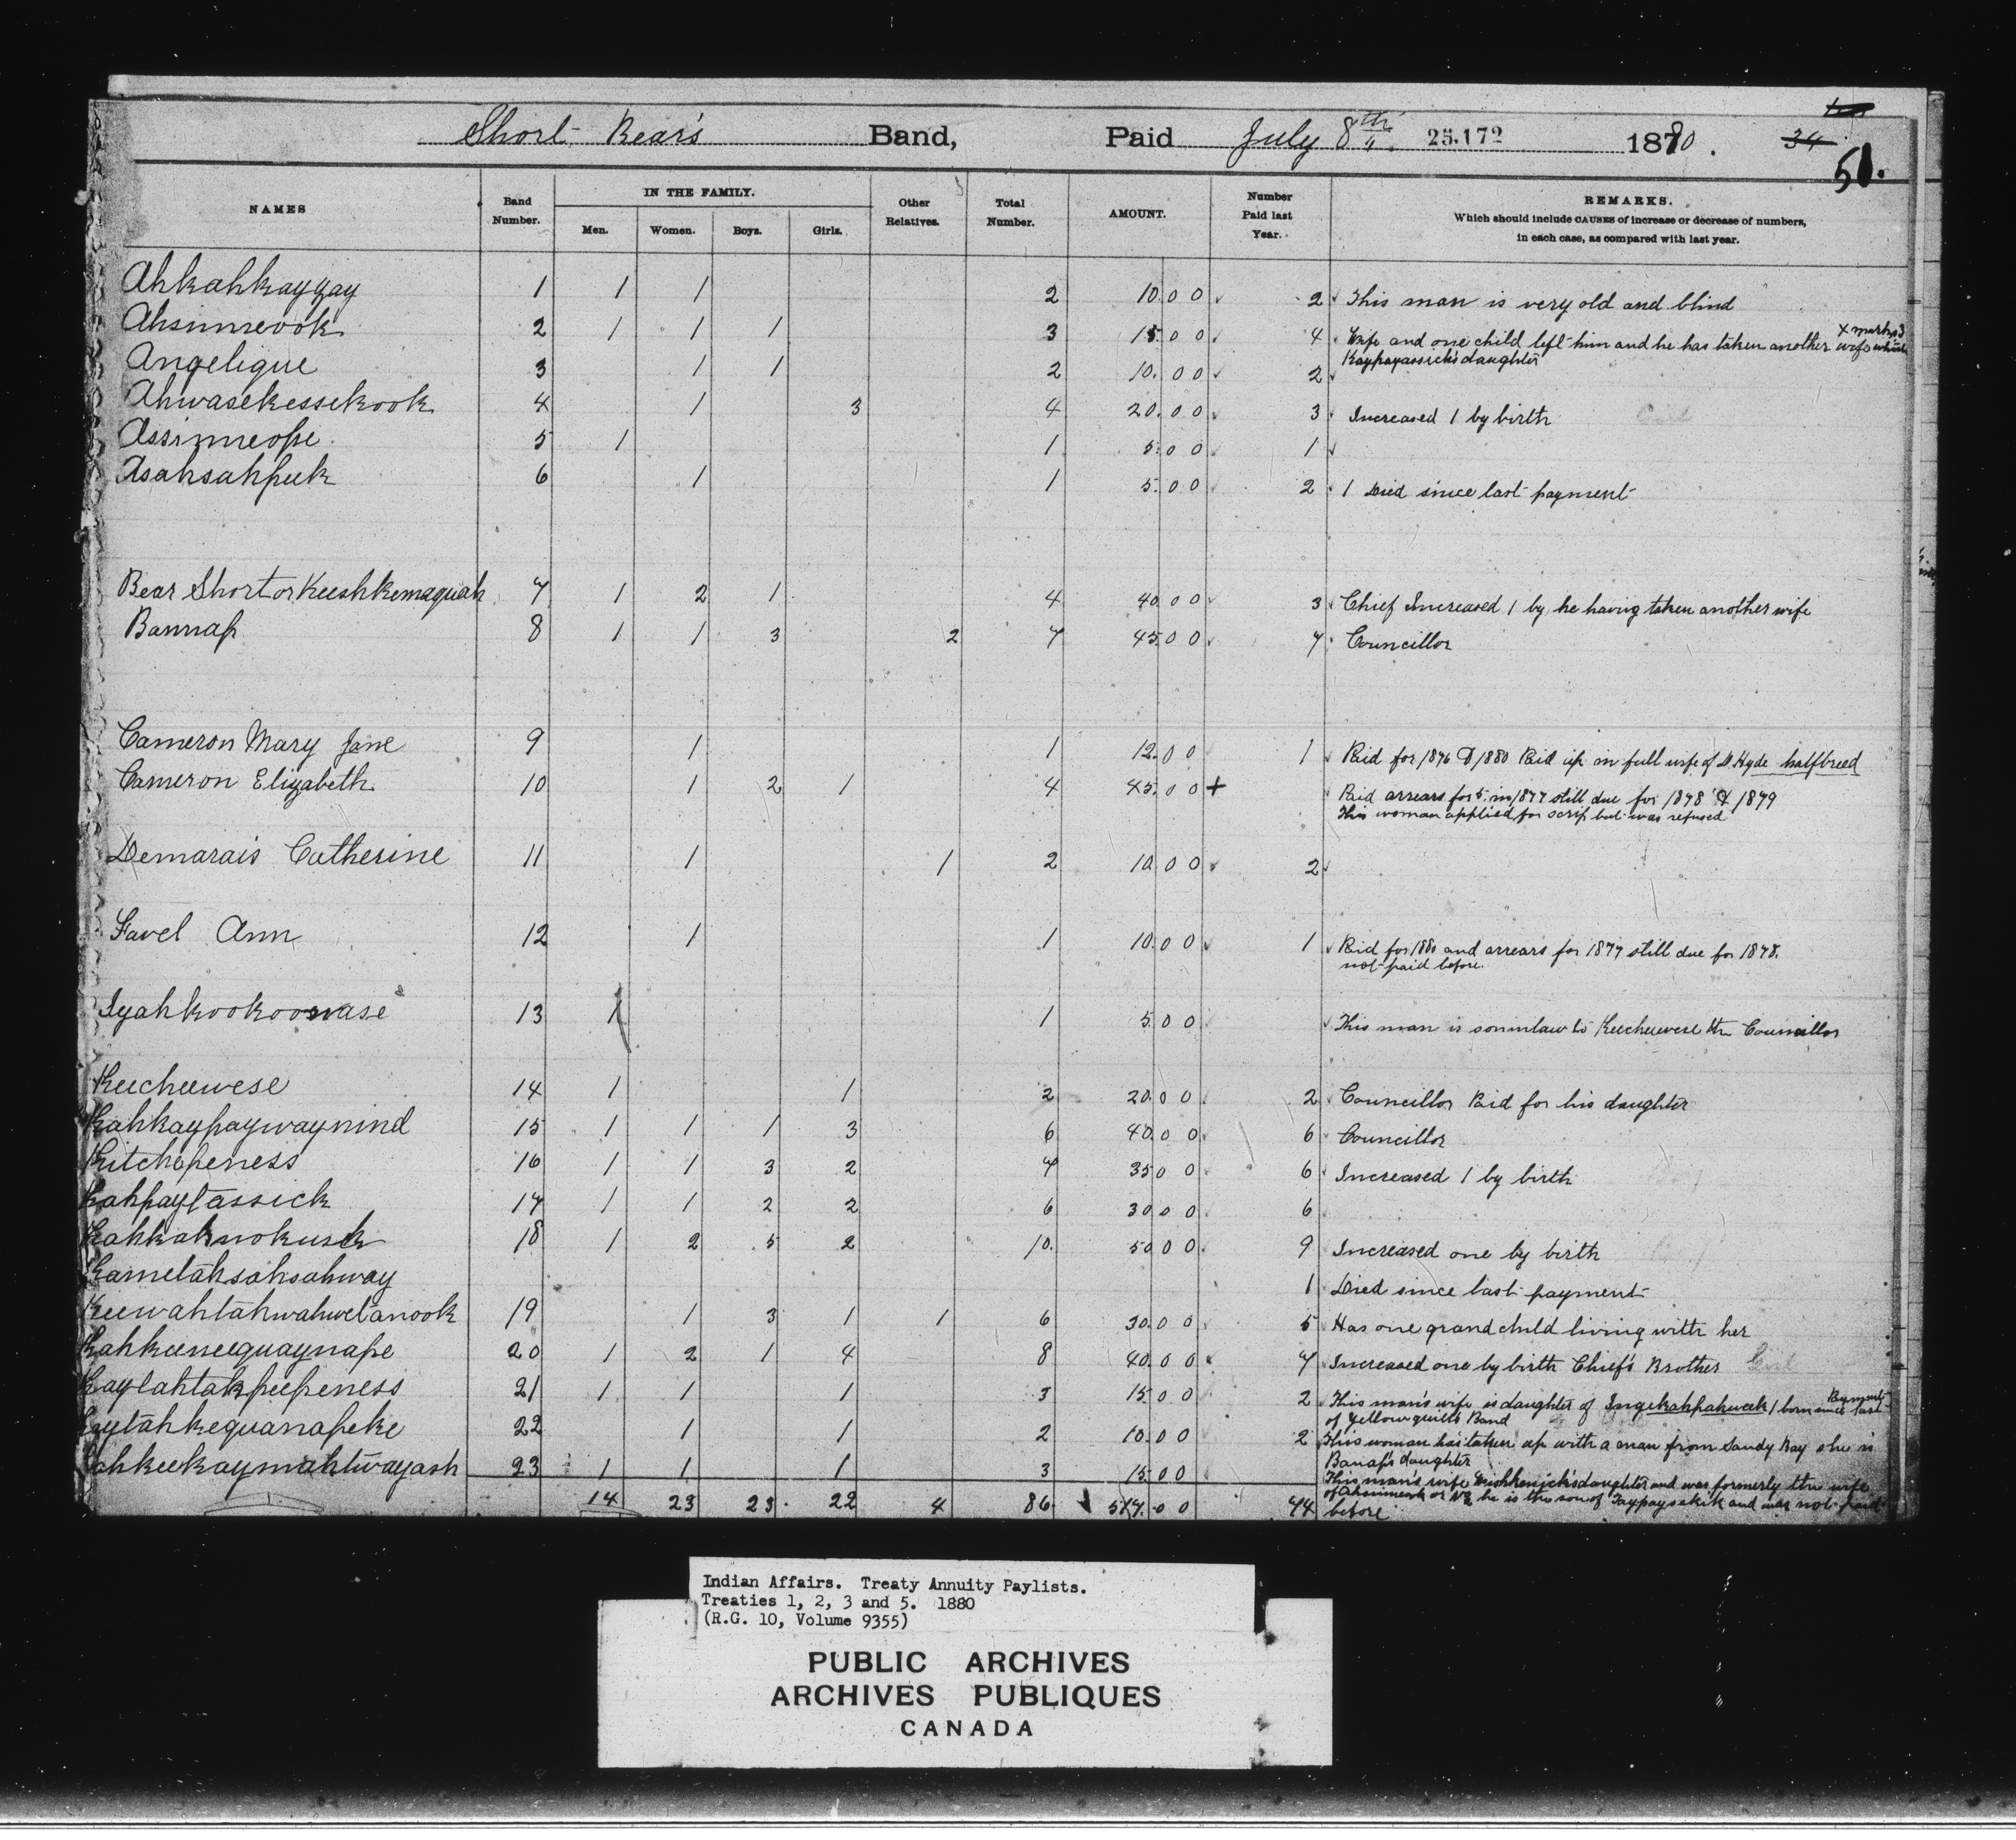 Short Bear's Band, Paid July 8th 25.172 1880. 34 51.
NAMES Band Number. IN THE FAMILY. Men. Women. Boys. Girls. Other Relatives. Total Number. AMOUNT. Number Paid last Year. REMARKS.
Which should include CAUSES of increase or decrease of numbers,
in each case, as compared with last year.
Ahkahkayzay 1 1 1 2 10.00 2 This man is very old and blind
Ahsinneook 2 1 1 1 3 15.00 4 Wife and one child left him and he has taken another wife
Kaypayassick's daughter
Angelique 3 1 1 2 10.00 2
Ahwasekessekook 4 1 3 4 20.00 3 Increased 1 by birth
Assinneope 5 1 1 5.00 1
Asahsahpuk 6 1 1 5.00 2 1 Died since last payment
Bear Short or Keeshkemaquah 7 1 2 1 4 40.00 3 Chief Increased 1 by he having taken another wife
Bannap 8 1 1 3 2 7 45.00 7 Councillor
Cameron Mary Jane 9 1 1 12.00 1 Paid for 1876 & 1880 Paid up in full wife of D. Hyde halfbreed
Cameron Elizabeth 10 1 2 1 4 45.00 + Paid arrears for 5 in 1877 still due for 1878 & 1879
This woman applied for scrip but was refused
Demarais Catherine 11 1 1 2 10.00 2
Favel Ann 12 1 1 10.00 1 Paid for 1880 and arrears for 1877 still due for 1878.
not paid before.
Iyahkookoowase 13 1 1 5.00 This man is soninlaw to Keecheewese the Councillor
Keecheewese 14 1 1 2 20.00 2 Councillor Paid for his daughter
Kahkaypaywaynind 15 1 1 1 3 6 40.00 6 Councillor
Kitchepeness 16 1 1 3 2 7 35.00 6 Increased 1 by birth
Kahpaytassick 17 1 1 2 2 6 30.00 6
Kahkahnokusk 18 1 2 5 2 10. 50.00 9 Increased one by birth
Kametahsahsahway 1 Died since last payment
Keewahtahwahwetanook 19 1 3 1 1 6 30.00 5 Has one grandchild living with her
Kahkeeneequaynape 20 1 2 1 4 8 40.00 7 Increased one by birth Chief's Brother
Kaytahtahpeepeness 21 1 1 1 3 15.00 2 This man's wife is daughter of Ingekahpahweek 1 born since last Payment
of Yellowquill's Band
Kaytahkequanapeke 22 1 1 2 10.00 2 This woman has taken up with a man from Sandy Bay she is
Banap's daughter
Kahkeekaymahtwayash 23 1 1 1 3 15.00 This man's wife daughter and was formerly the wife
of Ahsinneook or No 2 he is the son of Taypaysekik and was not paid
14 23 23 22 4 86 517.00 74 before
Indian Affairs. Treaty Annuity Paylists.
Treaties 1, 2, 3 and 5. 1880
(R.G. 10, Volume 9355)
PUBLIC ARCHIVES
ARCHIVES PUBLIQUES
CANADA